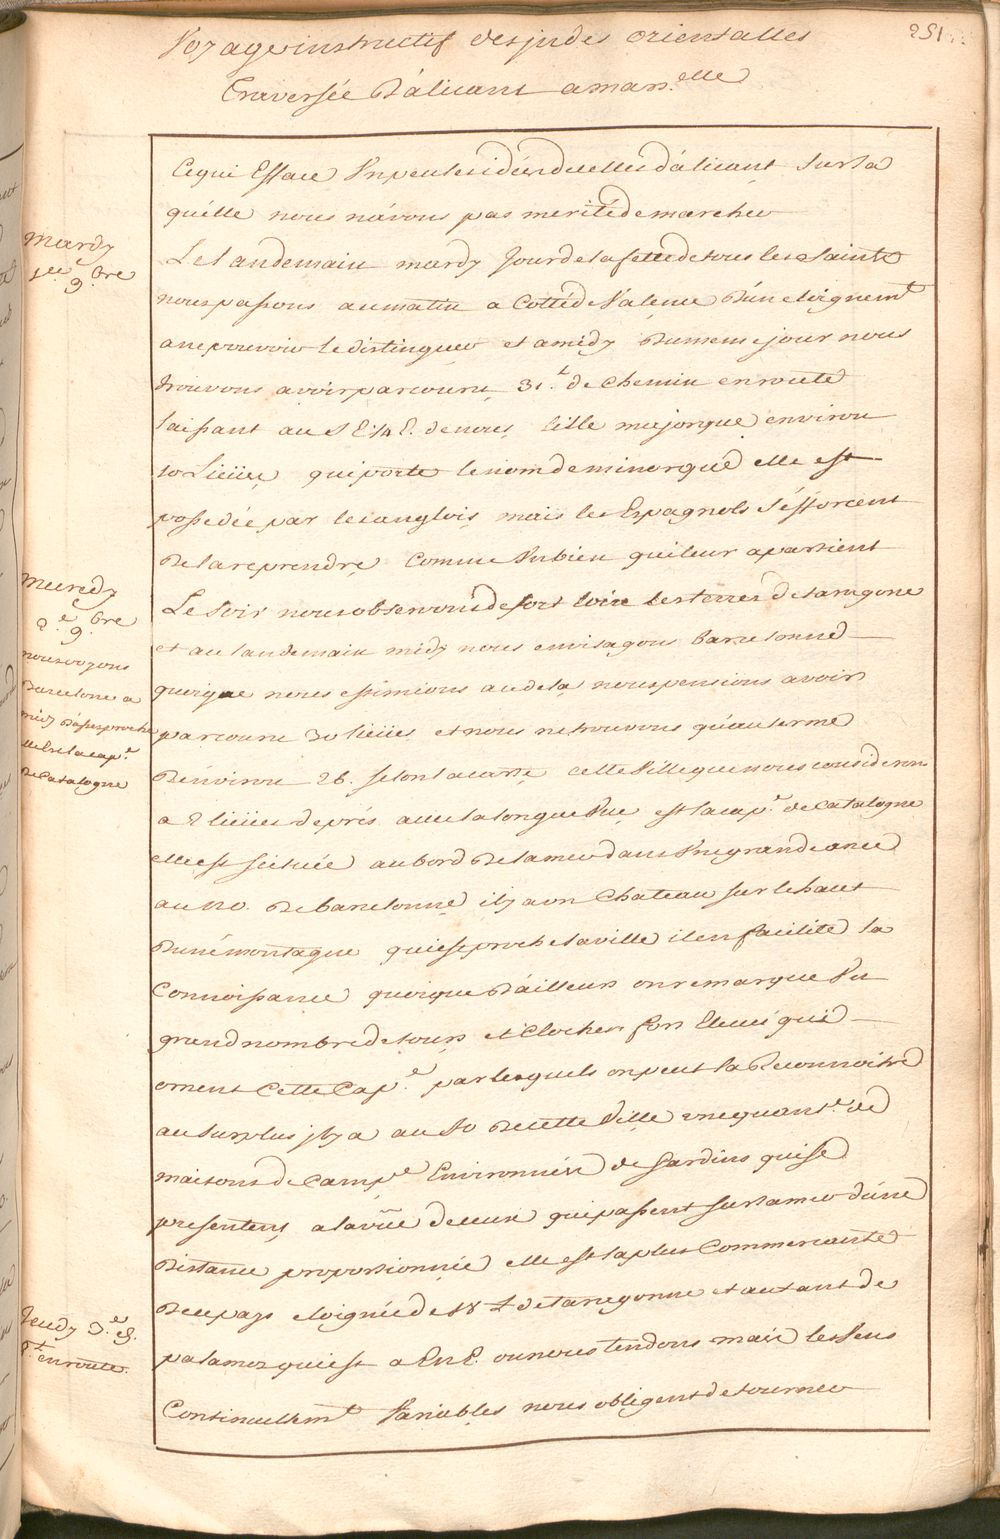 251
Voyage instructif des jndes orientalles
Traversée D'alicant a mars.elle
Ce qui Efface Un peu les idées de celles d'alicant sur la
quélle nous n'avons pas merité de marcher
Mardy
1er 9.bre
Le Landemain mardy Jour de la fette de tous les Saints
nous passons au matin a Cotté de Valence D'un eloignemt
a ne pouvoir le distinguer et a midy Du meme jour nous
trouvons avoir parcouru 31.L de chemin en route
laissant au S E 1/4 E. de nous, l'ille majorque environ
10 Lieües qui porte le nom de minorque elle est
possedée par les anglois mais les Espagnols s'éfforcent
De la reprendre Comme Un bien qui leur apartient
Mecredy
2.e 9.bre
nous voyons
Barcelone a
midy D'assés proche
elle Est la cap.e
De Catalogne
Le Soir nous observons de fort loin les terres de taragone
et au landemain midy nous envisagons Barcelonne
quoique nous estimions au dela nous pensions avoir
parcouru 30 lieües et nous ne trouvons qu'au terme
D'environ 26. selon la carte cette Ville que nous considerons
a 2 lieües de prés avec la longue Vue est la cap.e de Catalogne
elle est scituée au bord De la mer dans Une grande ance
au no. De barcelonne il y a un Chateau sur le haut
D'une montagne qui est proche la ville il en facilite la
Connoissance quoique D'ailleurs on remarque Un
grand nombre de tours et Clochers fort Elevés qui
ornent Cette Cap.e par lesquels on peut la Reconnoitre
au surplus jl y a au So De cette Ville une quant.é de
maisons de Camp.e Environnées de Jardins qui se
presentent a la vüe de ceux qui passent sur la mer d'une
Distance proportionnée elle est la plus Commercante
De ce pays eloignée de 18 L de taragonne et autant de
Jeudy 3.e 9.
P.t en route.
palamos qui est a EnE. ou nous tendons mais les Vens
Continuellem.t Variables nous obligent de tourner